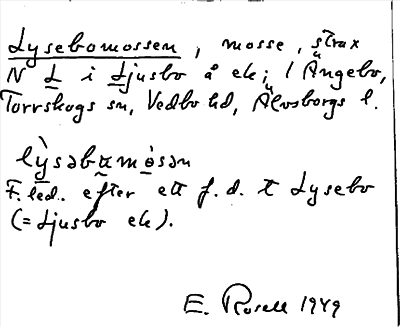 Lysebomossen, mosse, strax
N L i Ljusbo å ek; i Ängebo,
Torrskogs sn, Vedbo hd, Älvsborgs l.
lỳsəbωmòsən
F. led. efter ett f.d. t Lysebo
(= Ljusbo ek).
E. Rosell 1949